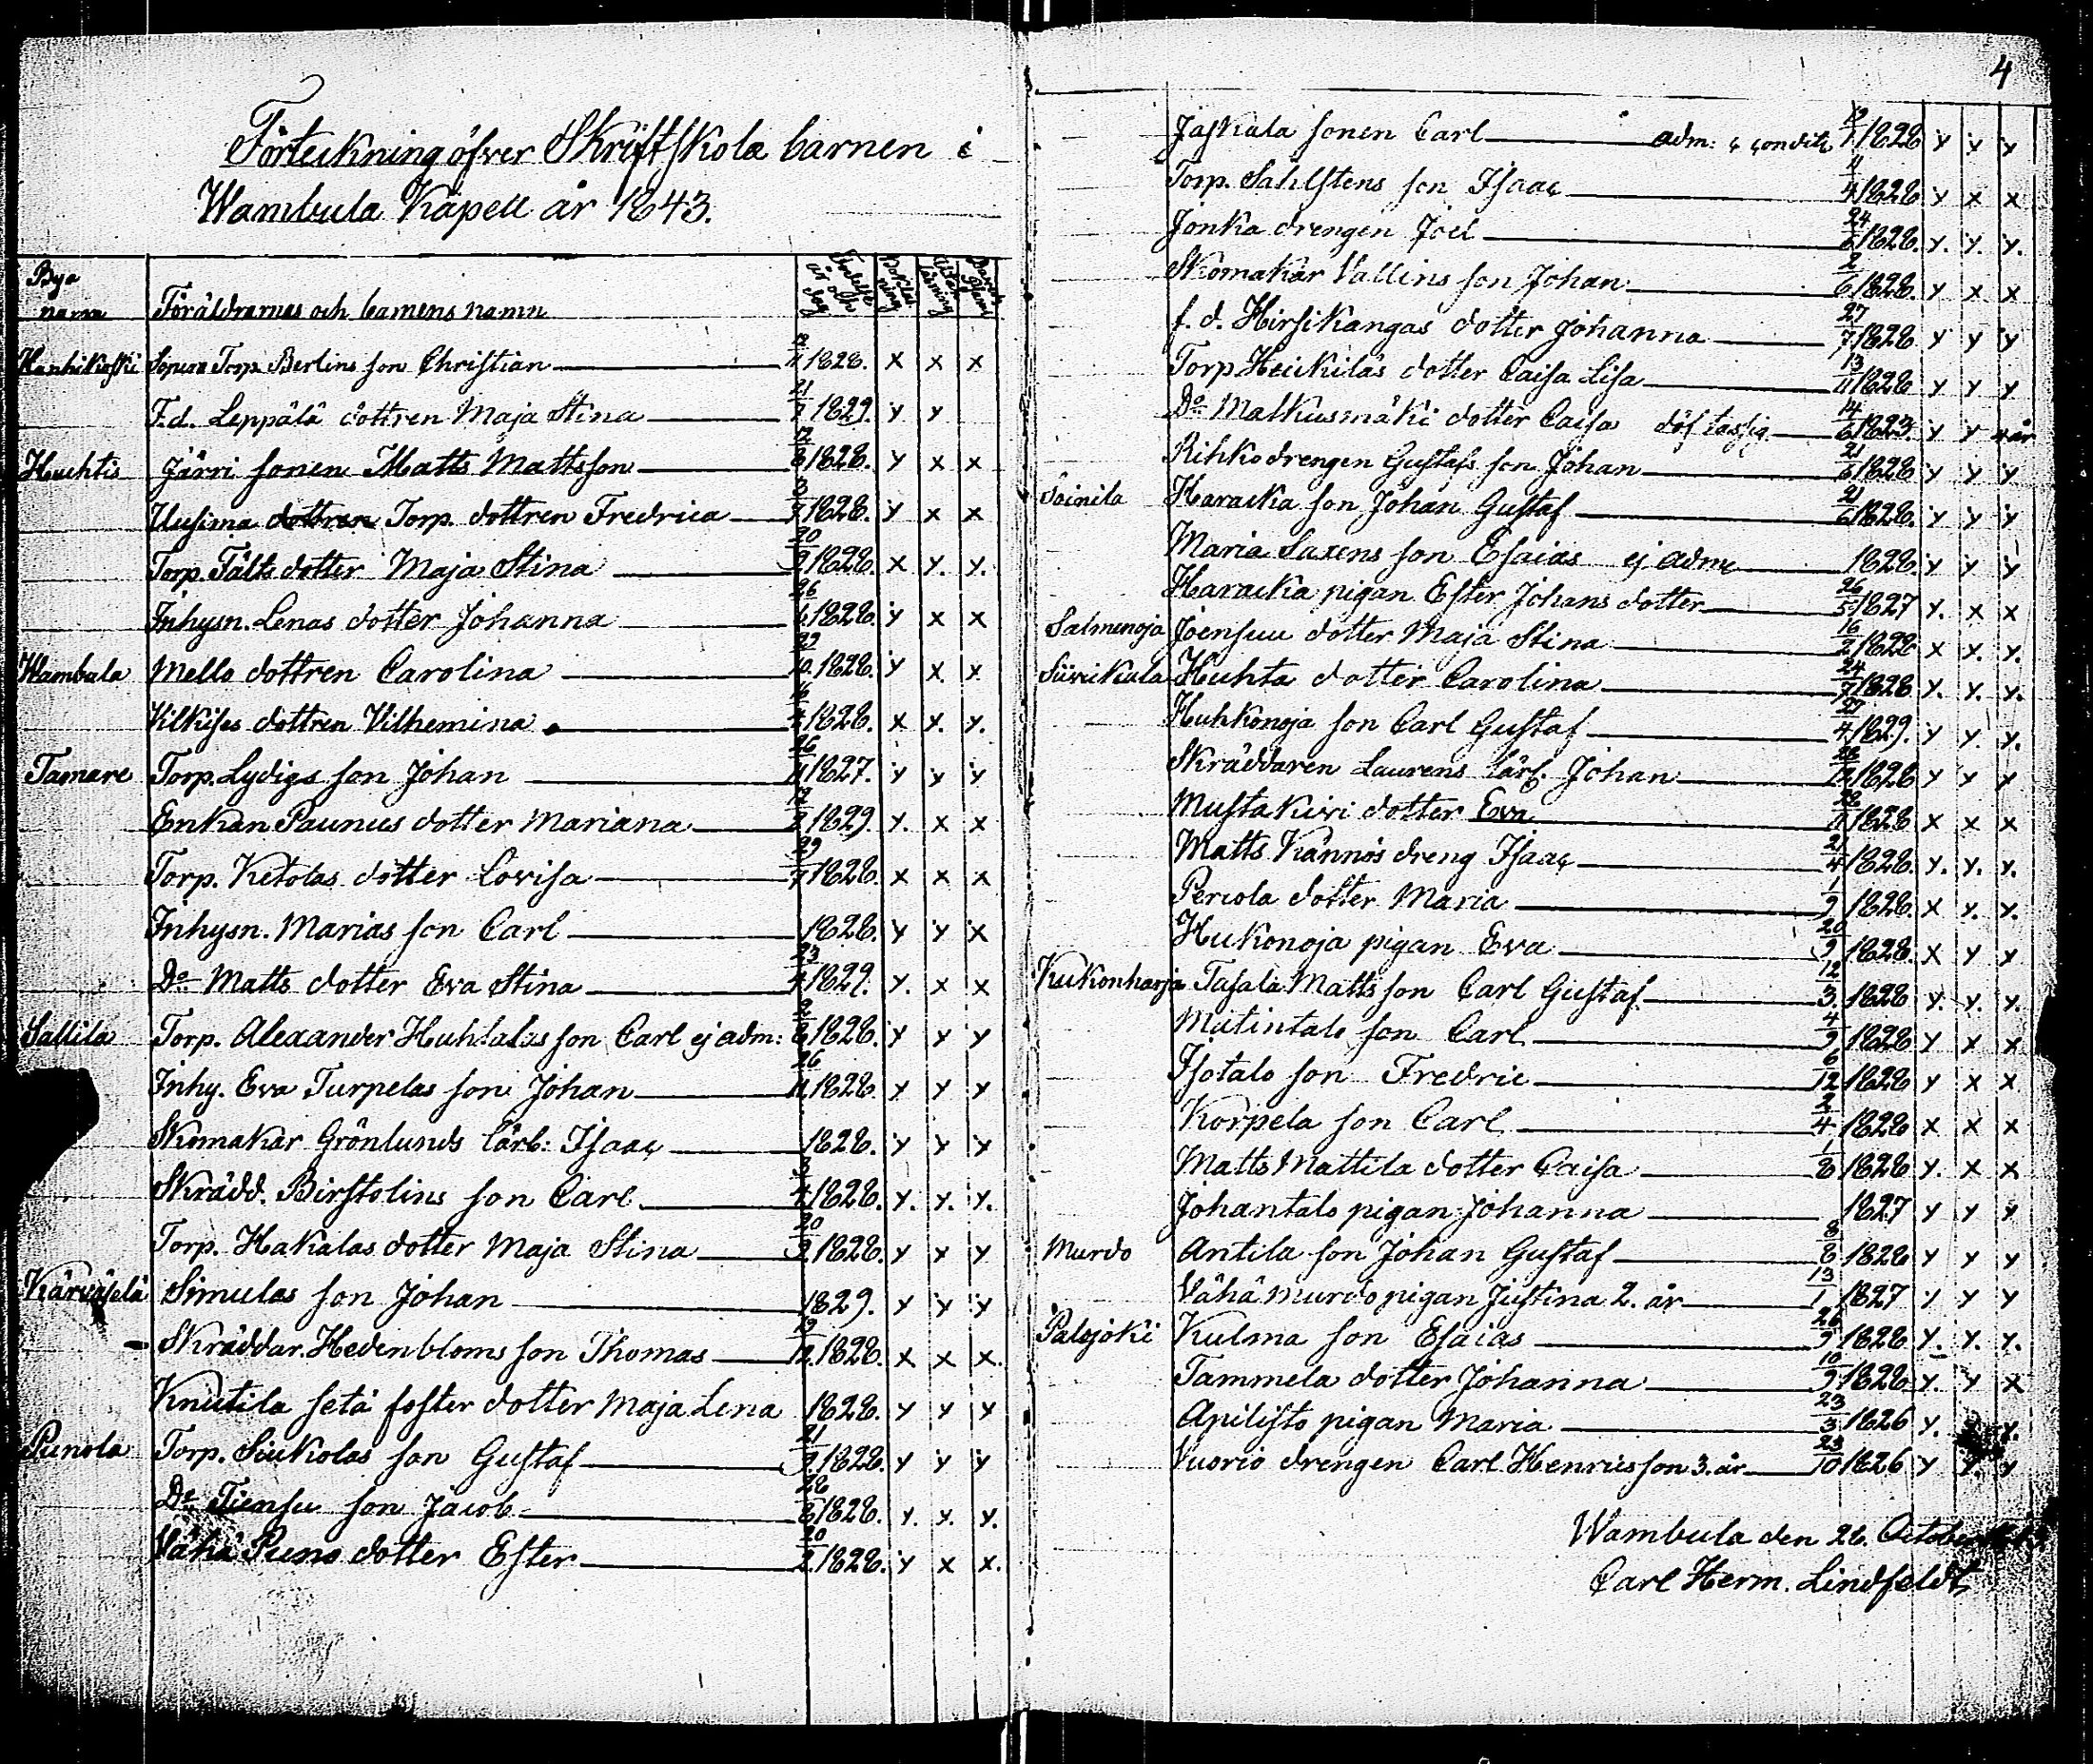 Förteckning öfver Skriftskola barnen i
Wambula Kapell år 1843.
Bya namn Föräldrarnas och barnens namn Födelse år och dag
Hanhikoski Sopura Torp. Berlins son Christian 11 1828. x x x
F.d. Leppälä dottren Maja Stina 21/7 1829. y y
Huhtis Järri sonen Matts Mattsson 12/8 1828. y x x
Uusima dottren Torp. dottren Fredrica 3/7 1828. y x x
Torp. Fälts dotter Maja Stina 20/9 1828. x y. y.
Inhysn. Lenas dotter Johanna 26/6 1828. y x x
Wambula Mello dottren Carolina 29/10. 1828. y x x
Vilkises dottren Vilhemina 1828. x y. y.
Tamare Torp. Lydigs son Johan 26/11 1827. y y y
Enkan Paunus dotter Mariana 1829. y. x x
Torp. Ketolas dotter Lovisa 29/7 1828. x x x
Inhysn. Marias son Carl 1828. y y x
Do Matts dotter Eva Stina 23/4 1829. y. x x
Sallila Torp. Alexander Huhtalas son Carl ej adm: 1828. y y y
Inhy. Eva Turpelas son Johan 26/11 1828. y y y
Skomakar Grönlunds lärl: Isaac 1828. y y y
Skrädd. Birstolins son Carl 3/4 1828. y. y. y.
Torp. Hakalas dotter Maja Stina 20/2 1828. y y y
Kärväselä Simulas son Johan 1829. y y y
Skräddar. Hedenbloms son Thomas 19/12. 1828. x x x.
Knutila setä foster dotter Maja Lena 1828. y y y
Punola Torp. Siukolas son Gustaf 21/9. 1828. y y y
Do Tiensu son Jacob 28/8 1828. y. y. y.
Vähä Puno dotter Ester 20/2. 1828. y x x.
4
Jaskala sonen Carl adm: 1828 y y y
Torp. Sahlstens son Isaac 4/4 1828 y x x
Jonka drengen Joel 24/6 1828. y. y. y.
Skomakar Vallins son Johan 2/6 1828. y x x
f. d. Hirsikangas dotter Johanna 27/7 1828 y y y
Torp Heickiläs dotter Caisa Lisa 13/11 1828 y y y
Do Malkusmäki dotter Caisa 14/6 1823. y y 4 år
Rihko drengen Gustafs son Johan 21/6 1828 y y y
Soinila Haracka son Johan Gustaf 21/6 1828. y y y
Maria Saxens son Esaias ej adm 1828. y y y
Haracka pigan Ester Johans dotter 26/5 1827 y. x x
Salmenoja Joensuu dotter Maja Stina 16/2 1828 x x. y.
Siivikkala Huhta dotter Carolina 24/7 1828 y. y. y.
Huhkonoja son Carl Gustaf 27/4 1829. y y. y.
Skräddaren Laurens lärl. Johan 1828 y y y
Mustakivi dotter Eva 1828 x x x
Matts Kännös dreng Isaac 21/4 1828. y. y. y.
Percola dotter Maria 1/9 1828. x y. y.
Hukonoja pigan Eva 20/9 1828. x y y
Kukonharja Tasala Matts son Carl Gustaf 12/3. 1828 y. y. y.
Matintalo son Carl 4/9 1828 y x x
Isotalo son Fredric 6/12 1828 y x x
Korpela son Carl 2/4 1828 x x x
Matts Mattila dotter Caisa 1/8 1828 y. x x
Johantalo pigan Johanna 1827 y y y
Murdo Antila son Johan Gustaf 8/8 1828 y y y
Vähä Murdo pigan Justina 2. år 13/1 1827 y y y
Palojoki Kulma son Esaias 26/9 1828 y. y. y.
Tammela dotter Johanna 10/9 1828 y. y x
Apilisto pigan Maria 23/3 1826 y. y.
Vuorio drengen Carl Henricsson 3. år 23/10 1826 y y. y
Wambula den 28. October
Carl Herm. Lindfeldt